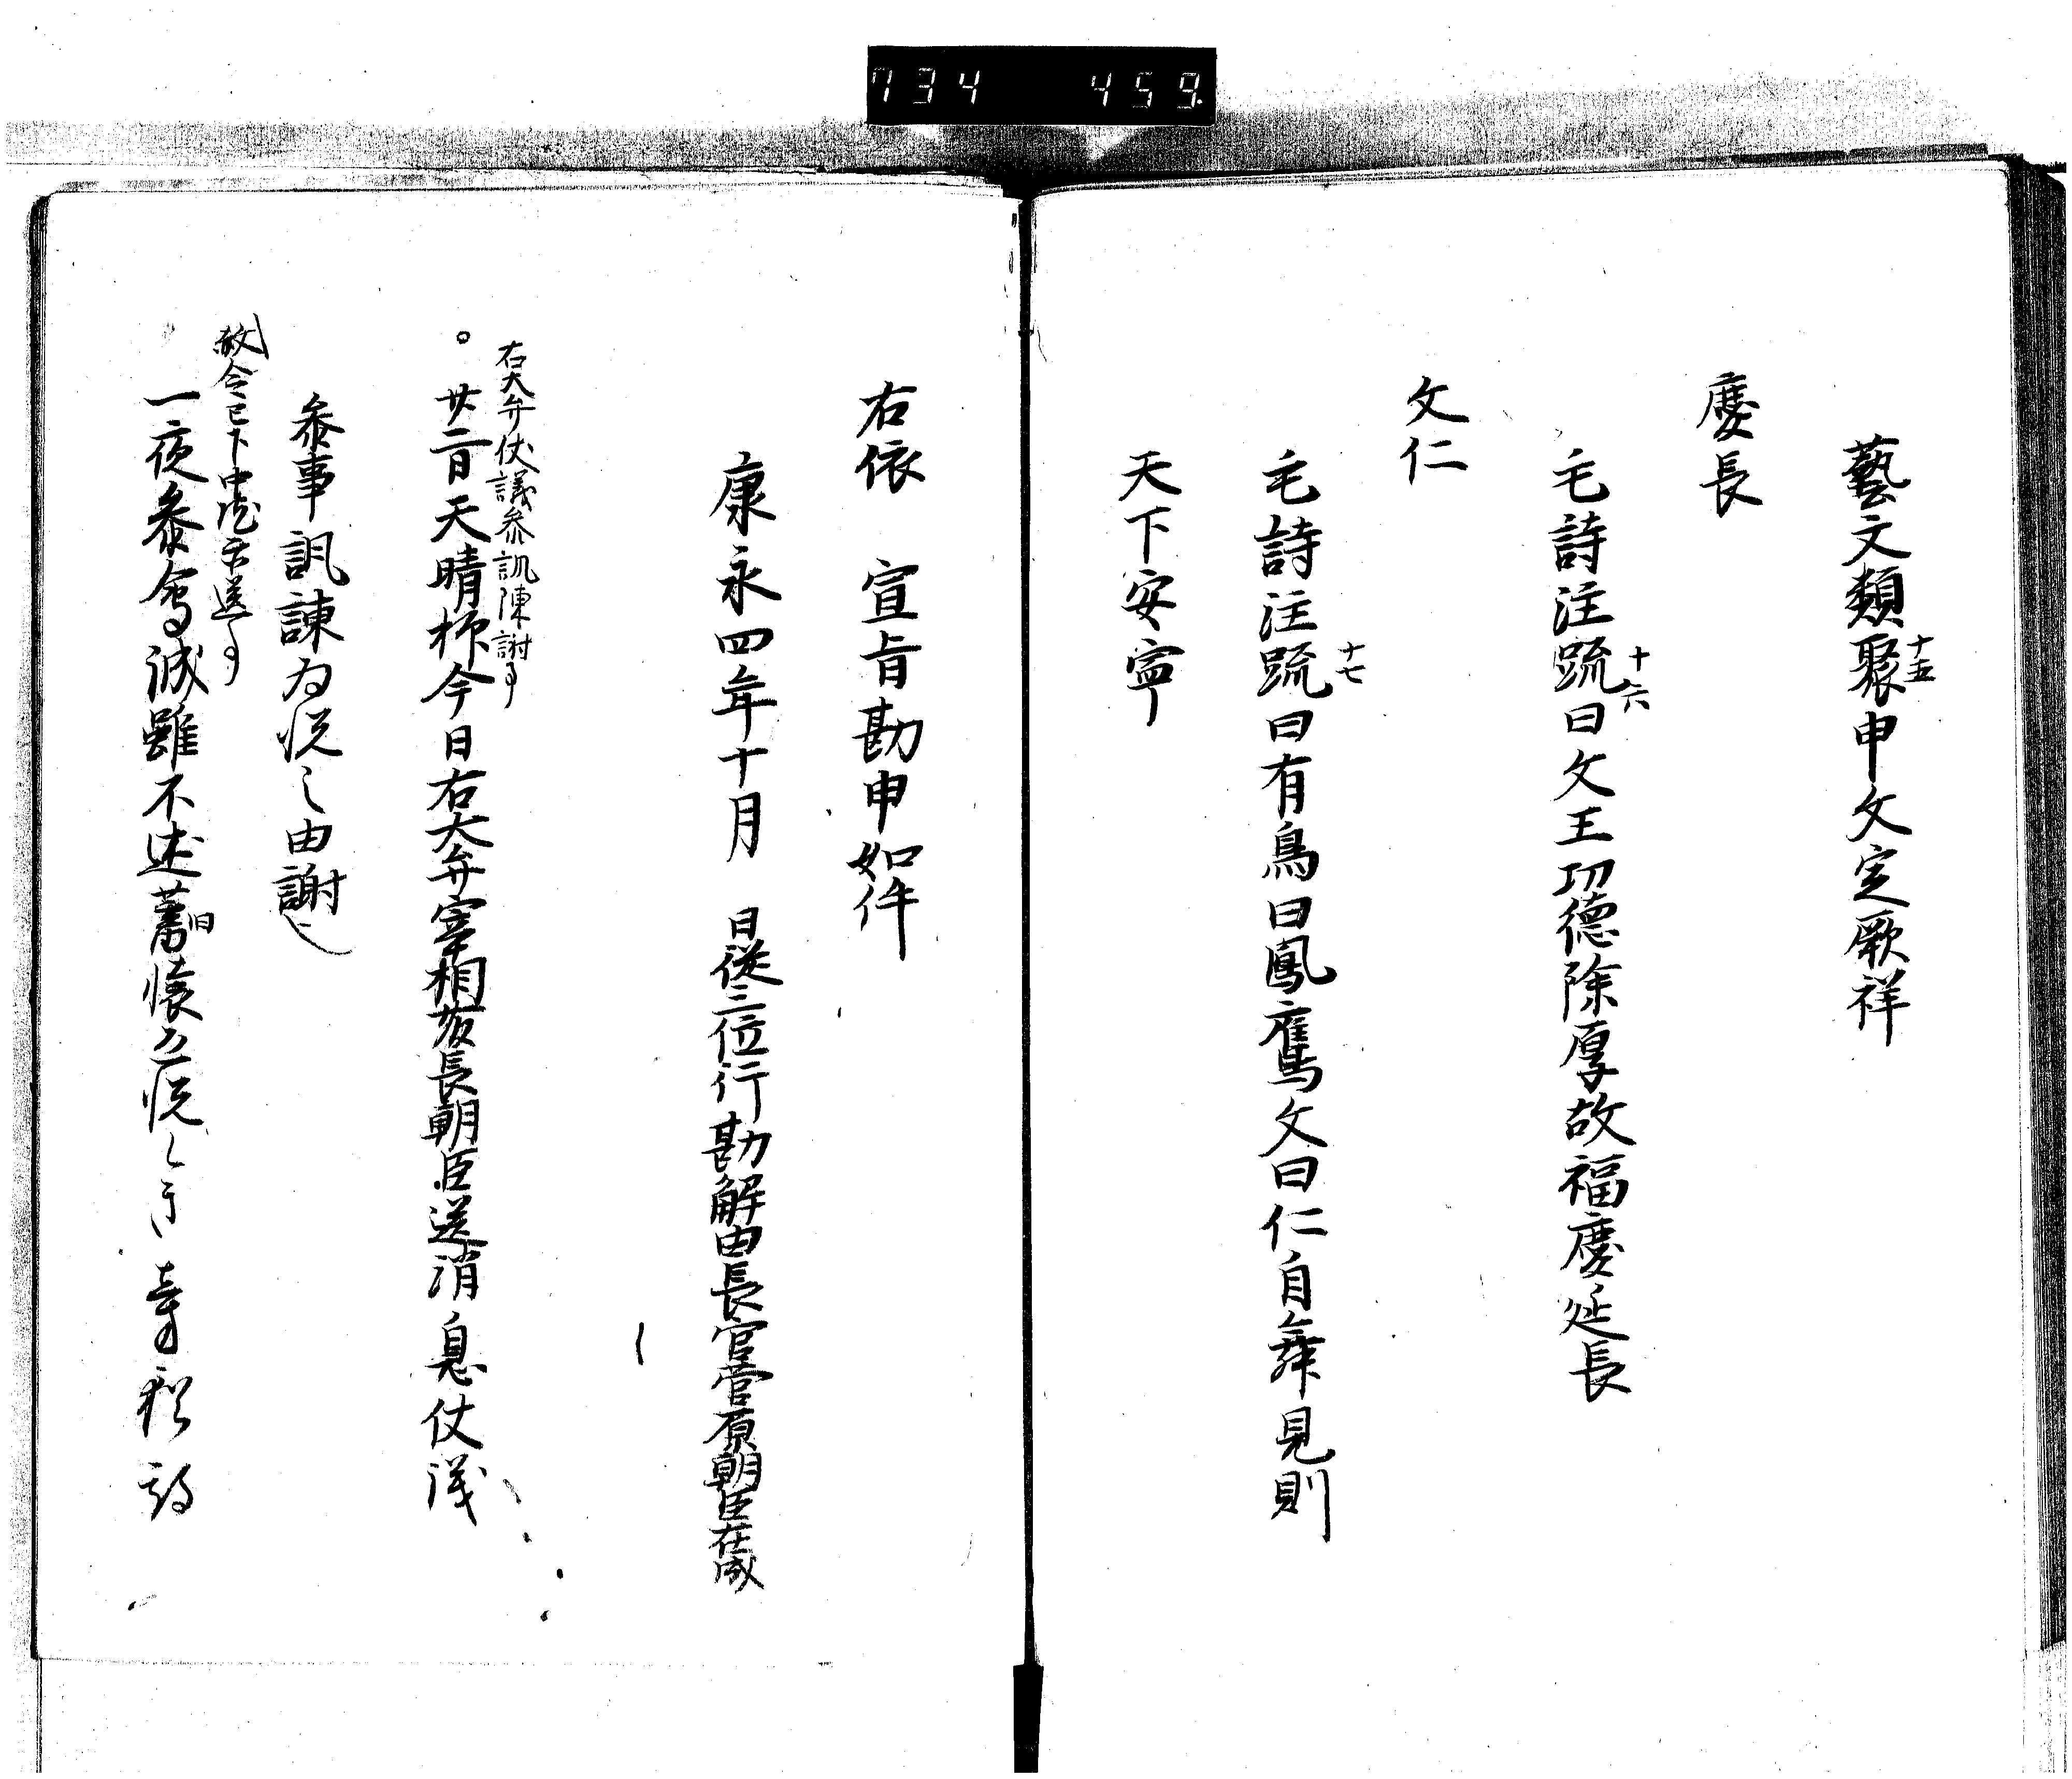 734 459
藝文類聚十五申文定厥祥
慶長
毛詩注疏十六曰文王功德除厚故福慶延長
文仁
毛詩注疏十七曰有鳥曰鳳鷹文曰仁自舞見則
天下安寧
右依 宣旨勘申如件
康永四年十月 日従三位行勘解由長官菅原朝臣在成
右大弁仗議参訊陳謝事
廿二日天晴抑今日右大弁宰相教長朝臣送消息仗議
参事訊諫為悦之由謝之
故令已下中
一夜参會誠雖不述舊旧懐為悦々